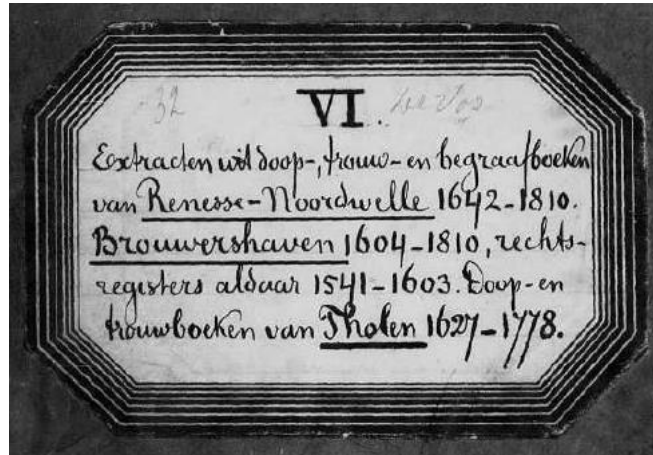 32
VI.
Extracten uit doop-, trouw- en begraafboeken
van Renesse-Noordwelle 1642-1810.
Brouwershaven 1604-1810, rechts-
registers aldaar 1541-1603. Doop- en
trouwboeken van Tholen 1627-1778.